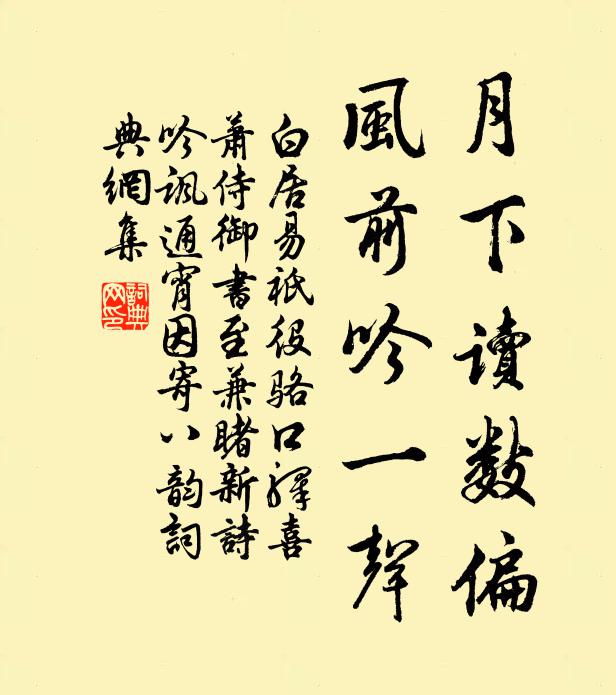 月下讀數偏
風前吟一聲
白居易祇役駱口驛喜
蕭侍御書至兼睹新詩
吟諷通宵因寄八韵詞
典網集
詞典
网印